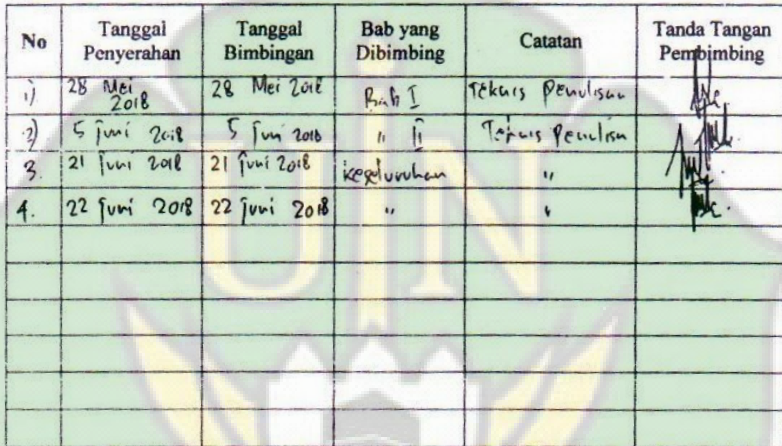 No Tanggal Penyerahan Tanggal Bimbingan Bab yang Dibimbing Catatan Tanda Tangan Pembimbing
1) 28 Mei 2018 28 Mei 2018 Bab I Teknis Penulisan
2) 5 Juni 2018 5 Juni 2018 " II Teknis Penulisan
3. 21 Juni 2018 21 Juni 2018 keseluruhan "
4. 22 Juni 2018 22 Juni 2018 " "
UIN